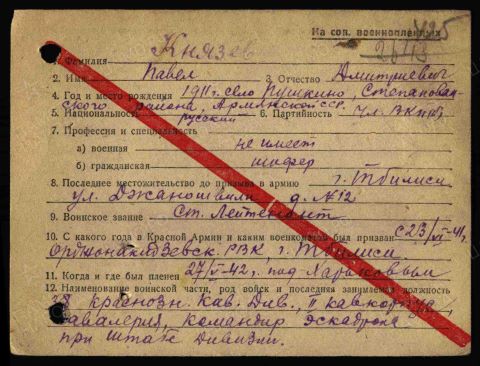 На сов. военнопленных
425
26/43
Князев
1. Фамилия
2. Имя Павел 3. Отчество Дмитриевич
4. Год и место рождения 1911г. село Пушкино, Степанован-
ского района, Армянской ССР.
5. Национальность русский 6. Партийность Чл. ВКП(б)
7. Профессия и специальность
а) военная не имеет
б) гражданская шофер
8. Последнее местожительство до призыва в армию г. Тбилиси
ул. Джанашвили д. №12
9. Воинское звание Ст. Лейтенант
10. С какого года в Красной Армии и каким военкоматом был призван с 23/VI-41г.
Орджоникидзевск. РВК, г. Тбилиси
11. Когда и где был пленен 27/V-42 г. под Харьковым
12. Наименование воинской части, род войск и последняя занимаемая должность
38 краснозн. Кав. Див., II кавкорпуса
кавалерия, командир эскадрона
при штабе дивизии.